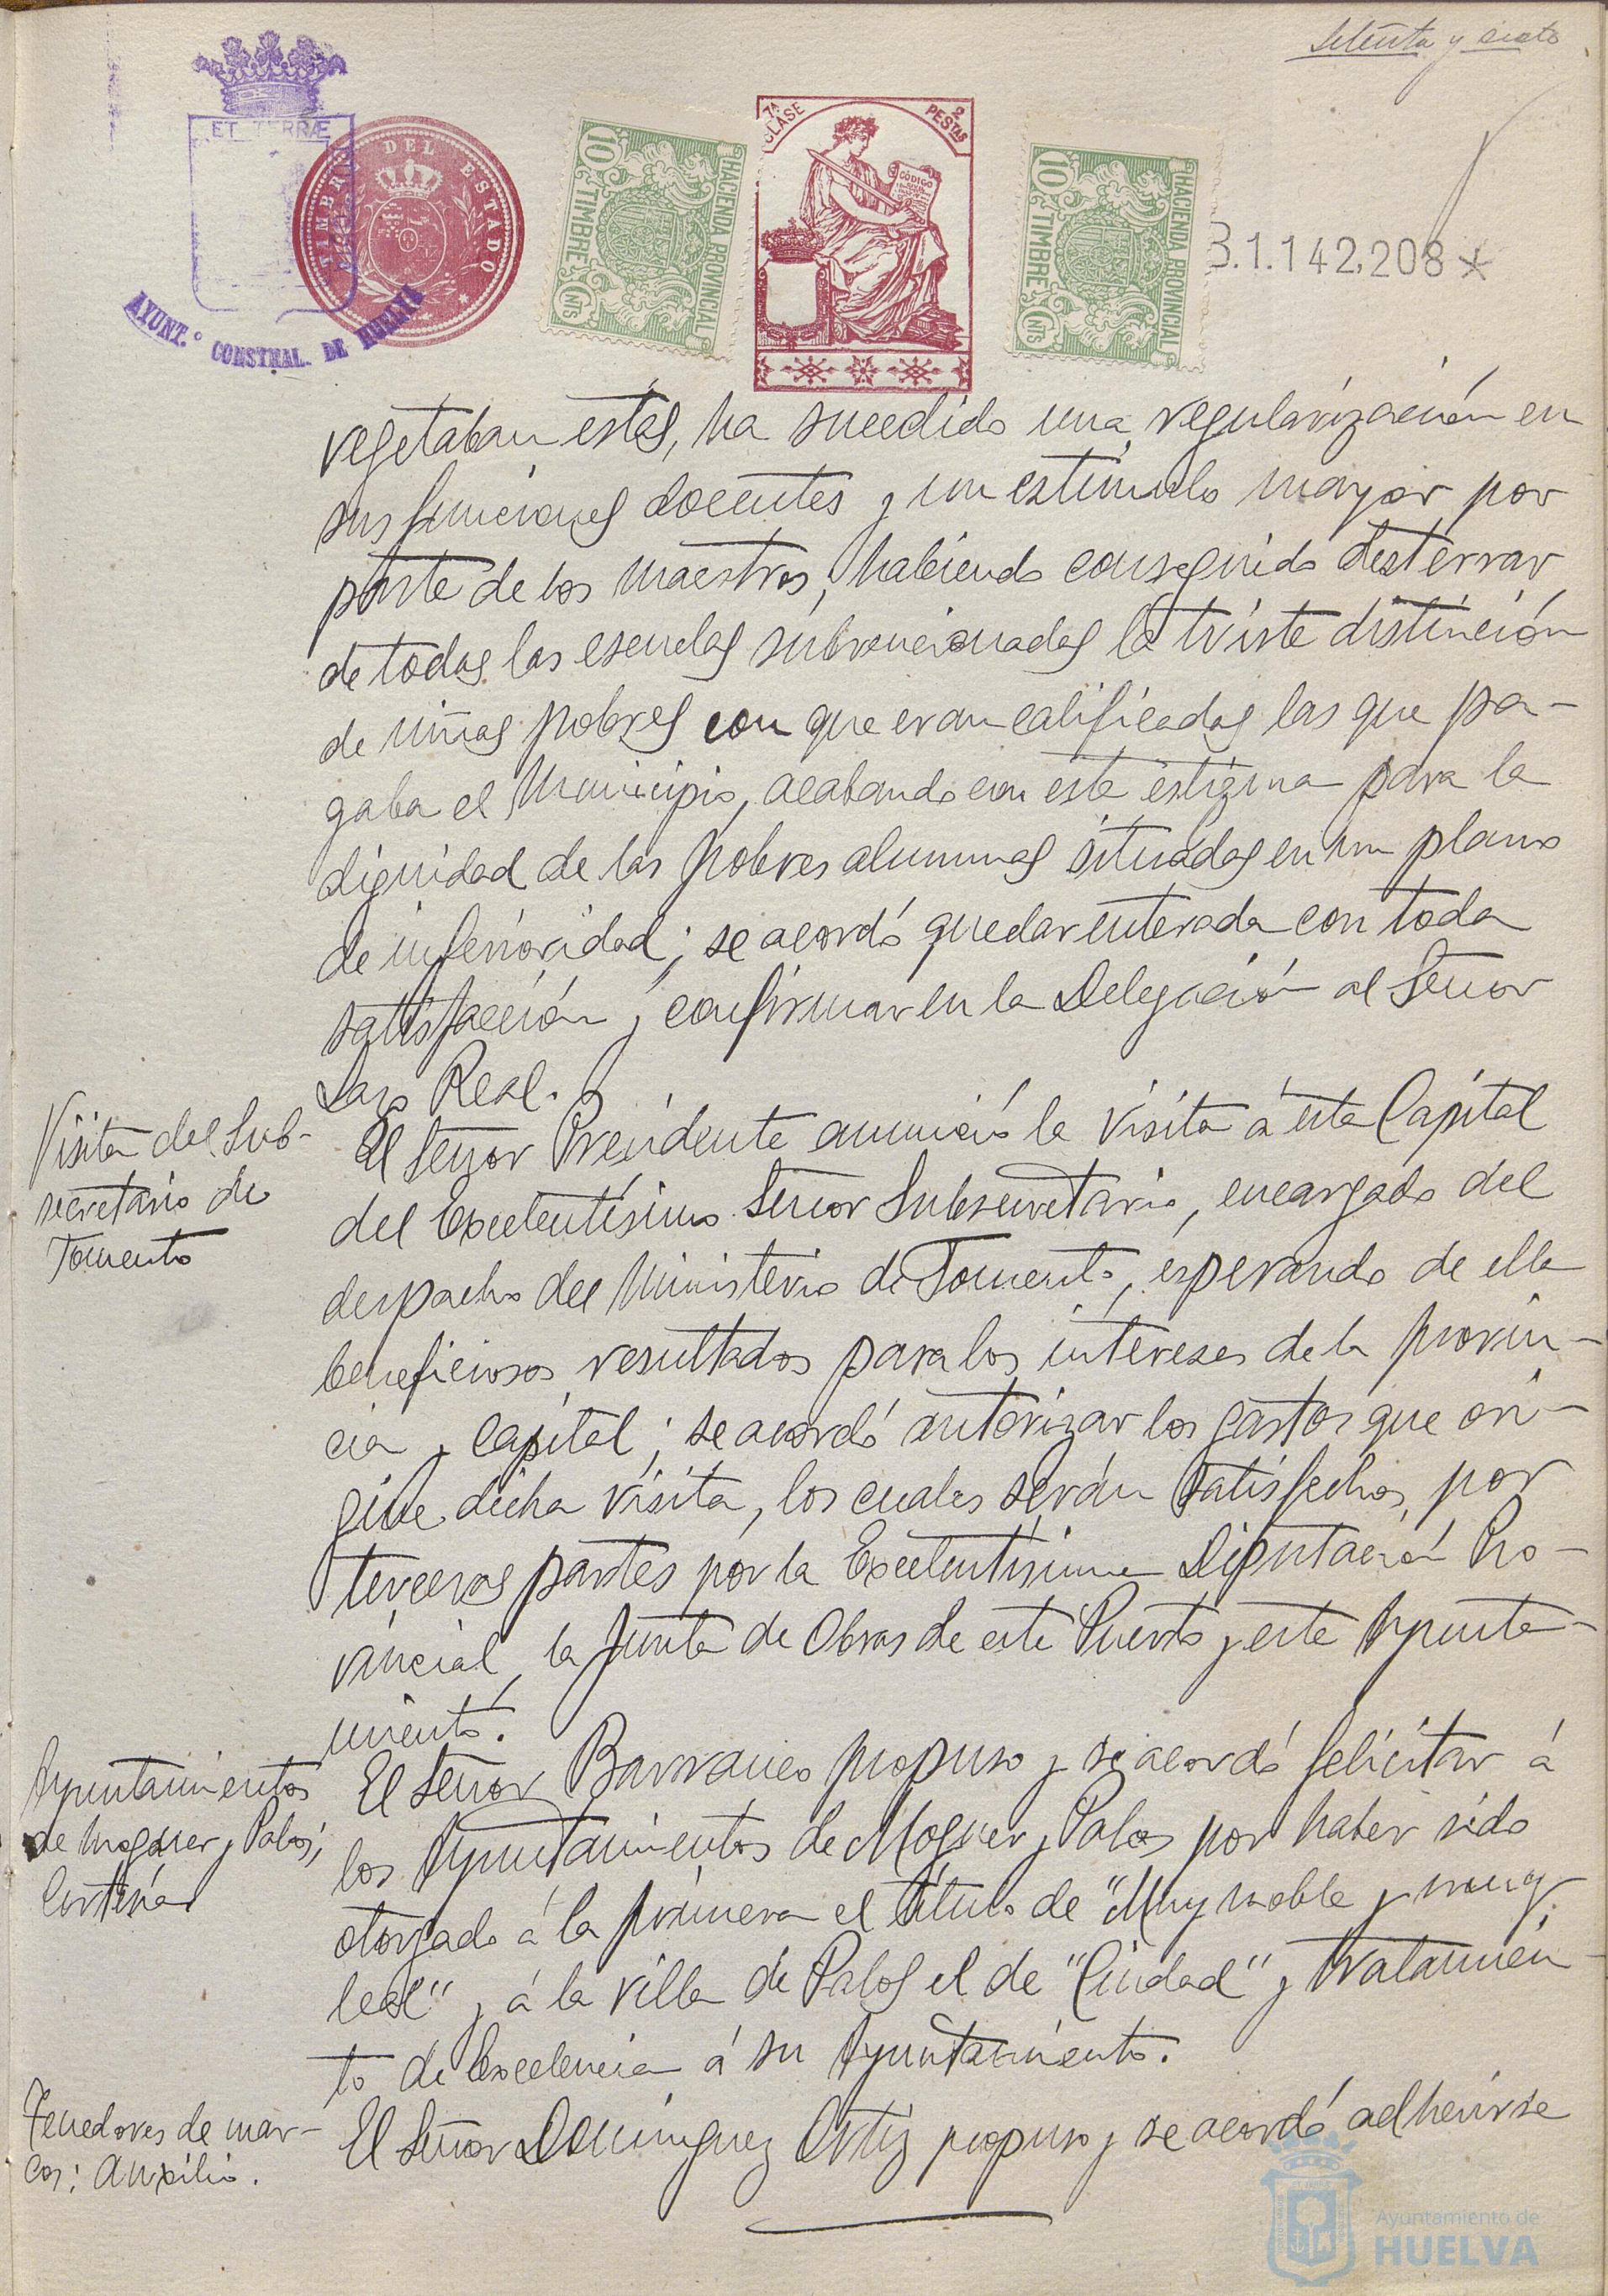 setenta y siete
ET TERRÆ
TIMBRE DEL ESTADO
AYUNT.º CONSTNAL. DE HUELVA
10 Cs TIMBRE 10 CNTS
HACIENDA PROVINCIAL
7ª CLASE
2 PESTAS
CÓDIGO
10 Cs TIMBRE 10 CNTS
HACIENDA PROVINCIAL
B.1.142,208*
vegetaban estas, ha sucedido una regularización en
sus funciones docentes y un estímulo mayor por
parte de los maestros; habiendo conseguido desterrar
de todas las escuelas subvencionadas la triste distinción
de niñas pobres con que eran calificadas las que pa-
gaba el Municipio, acabando con este estigma para la
dignidad de las pobres alumnas situadas en un plano
de inferioridad; se acordó quedar enterada con toda
satisfacción y confirmar en la Delegación al Señor
Lazo Real.
Visita del Sub-
secretario de
Fomento
El Señor Presidente anunció la visita á esta Capital
del Excelentísimo Señor Subsecretario, encargado del
despacho del Ministerio de Fomento, esperando de ella
beneficiosos resultados para los intereses de la provin-
cia y capital; se acordó autorizar los gastos que ori-
gine dicha visita, los cuales serán satisfechos por
terceras partes por la Excelentísima Diputación Pro-
vincial, la Junta de Obras de este Puerto y este Ayunta-
miento.
Ayuntamientos
de Moguer y Palos;
Cortesía
El Señor Barranco propuso y se acordó felicitar á
los Ayuntamientos de Moguer y Palos por haber sido
otorgado á la primera el título de "Muy noble y muy
leal" y á la villa de Palos el de "Ciudad" y tratamien-
to de Excelencia á su Ayuntamiento.
Tenedores de mar-
cos: Auxilio.
El Señor Domínguez Ortiz propuso y se acordó adherirse
Ayuntamiento de
HUELVA